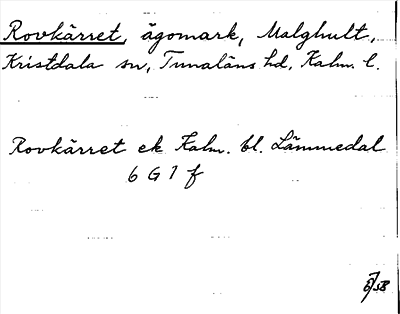 Rovkärret, ägomark, Malghult,
Kristdala sn, Tunaläns hd, Kalm. l.
Rovkärret ek Kalm. bl. Lämmedal
6 G 1 f